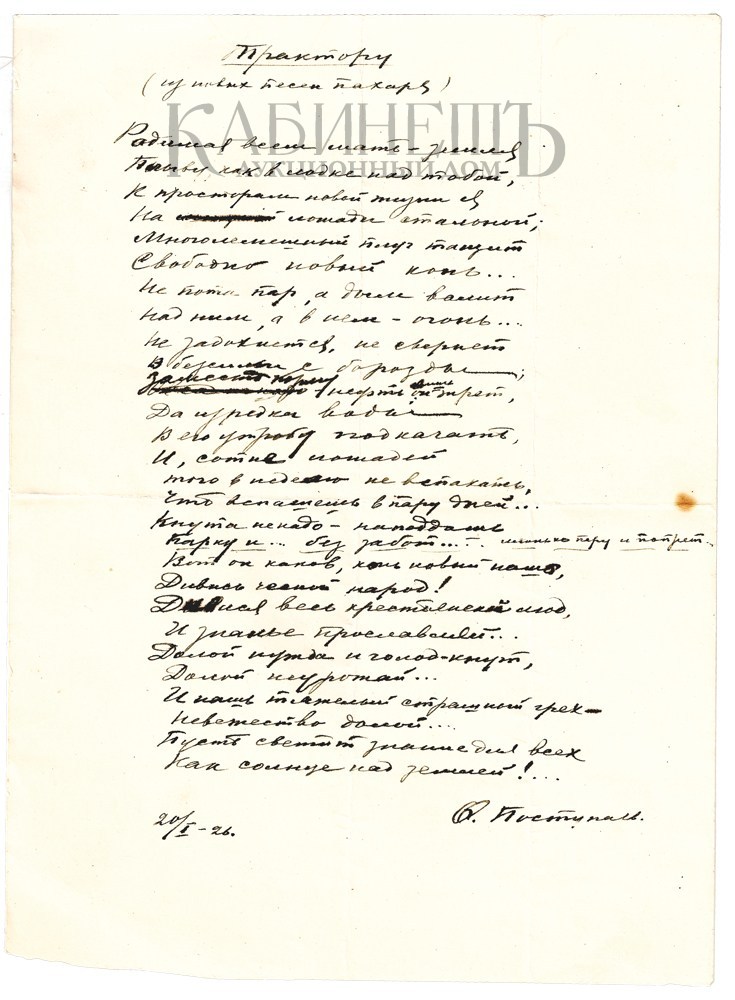 Трактору
(из новых песен пахаря)
КАБИНЕТЪ
АУКЦИОННЫЙ ДОМ
Родимая всем мать-земля
Плыву, как в лодке над тобой,
К просторам новой жизни я
На лошади стальной;
Многолемешный плуг тащит
Свободно новый конь...
Не пота пар, а дым валит
Над ним, а в нем - огонь...
Не задохнется, не свернет
В бессильи с борозды;
Заместо корму нефть он жрет,
Да изредка воды
В его утробу подкачать,
И, сотне лошадей
того в неделю не вспахать,
Что вспашешь в пару дней...
Кнута ненадо - наподдашь
Парку и... без забот..... только пару и попрет..
Вот он каков, конь новый наш,
Дивись честной народ!
Дивися весь крестьянский люд,
И знанье прославляй...
Долой нужда и голод-кнут,
Долой неурожай...
И наш тяжелый страшный грех-
Невежество долой...
Пусть светит знание для всех
Как солнце над землей!...
20/I-26.
Поступаев.